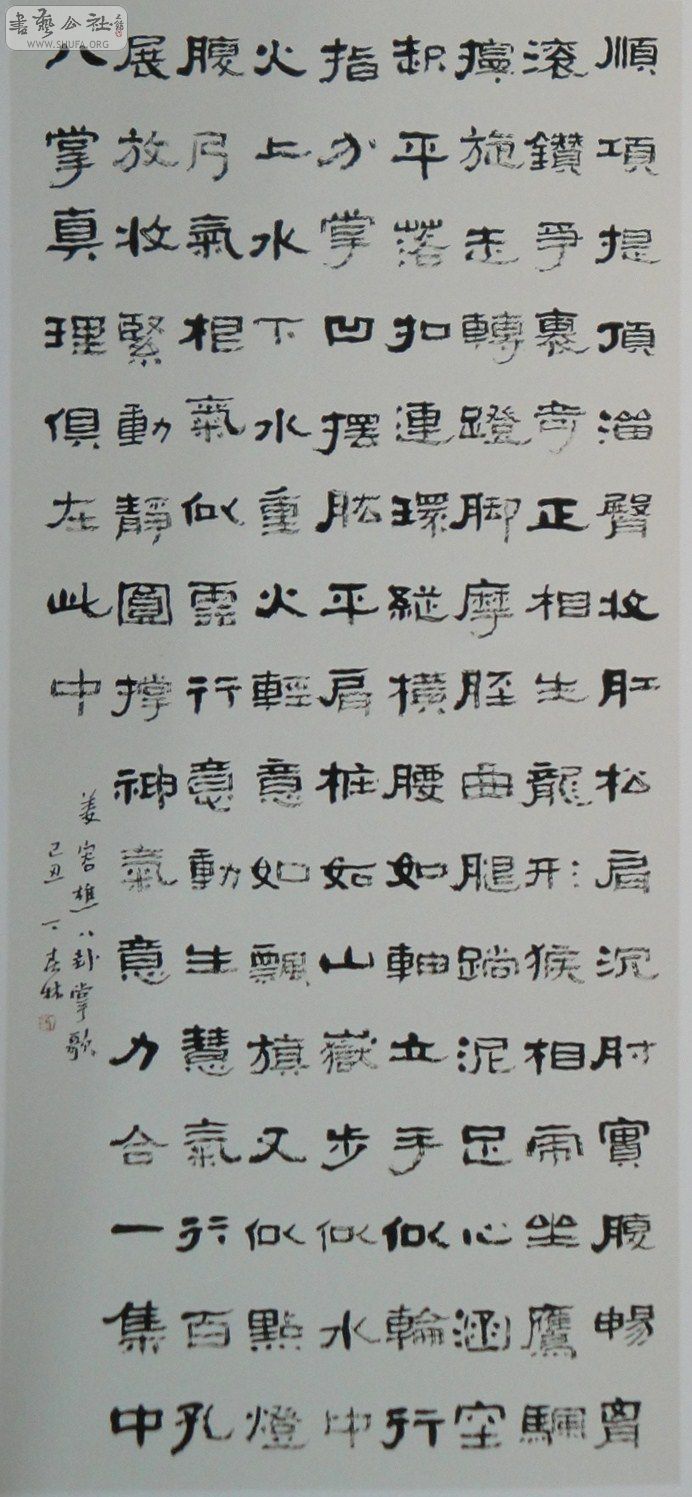 書藝公社
WWW.SHUFA.ORG
順項提頂溜臀收肛松肩沉肘實腹暢胷
滾鑽爭裹奇正相生龍形猴相虎坐鷹翻
擰旋走轉蹬脚摩脛曲腿蹚泥足心涵空
起平落扣連環縱橫腰如軸立手似輪行
指分掌凹摆肱平肩桩如山嶽步似水中
火上水下水重火輕意如飄旗又似點燈
腹乃氣根氣似雲行意動生慧氣行百孔
展放收緊動靜圓撐神氣意力合一集中
八掌真理俱在此中
姜容樵八卦掌歌
己丑